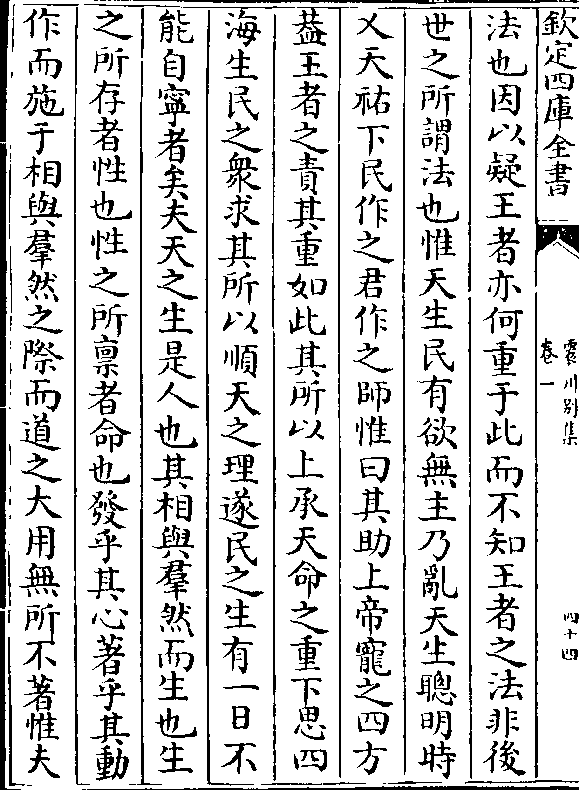 欽定四庫全書
震川别集
卷一
四十四
法也因以疑王者亦何重于此而不知王者之法非後
世之所謂法也惟天生民有欲無主乃亂天生聰明時
乂天祐下民作之君作之師惟曰其助上帝寵之四方
葢王者之責其重如此其所以上承天命之重下思四
海生民之衆求其所以順天之理遂民之生有一日不
能自寧者矣夫天之生是人也其相與羣然而生也生
之所存者性也性之所禀者命也發乎其心著乎其動
作而施于相與羣然之際而道之大用無所不著惟夫